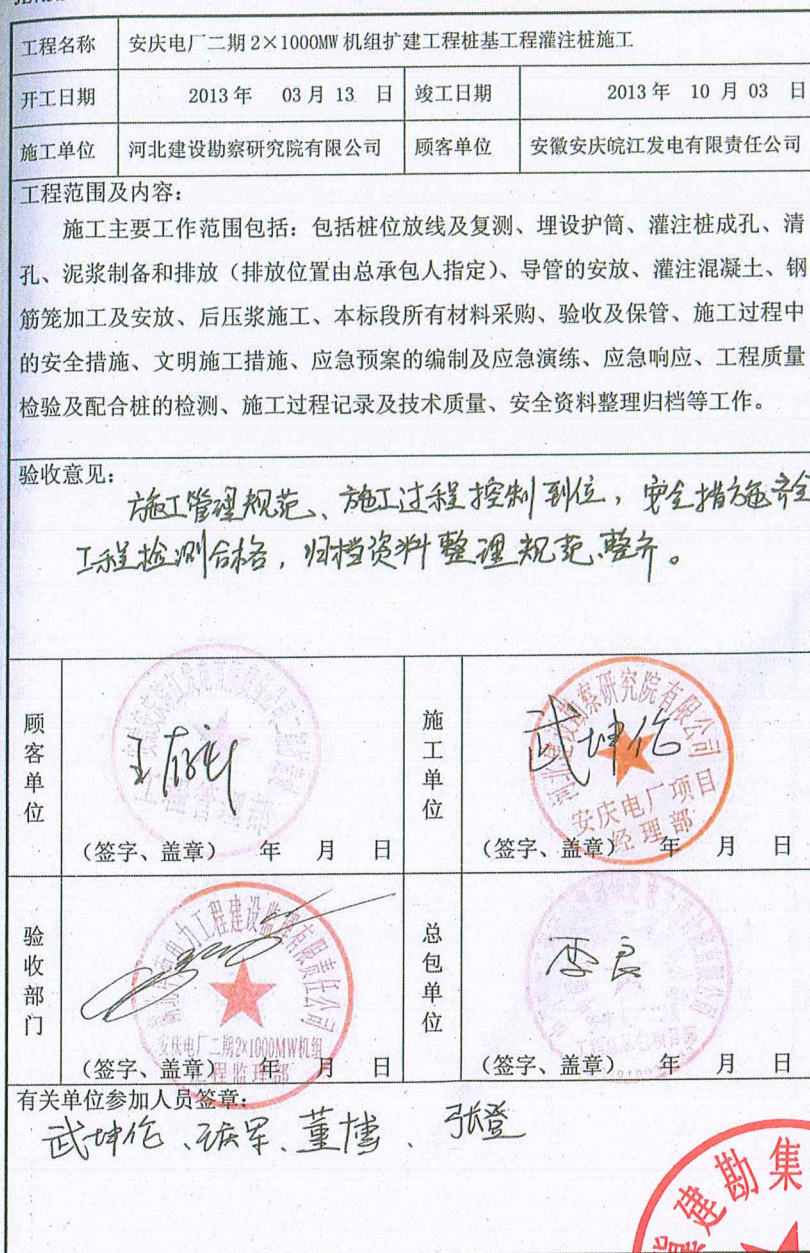 工程名称 安庆电厂二期2×1000MW机组扩建工程桩基工程灌注桩施工
开工日期 2013年 03月13 日 竣工日期 2013年 10月03 日
施工单位 河北建设勘察研究院有限公司 顾客单位 安徽安庆皖江发电有限责任公司
工程范围及内容：
施工主要工作范围包括：包括桩位放线及复测、埋设护筒、灌注桩成孔、清
孔、泥浆制备和排放（排放位置由总承包人指定）、导管的安放、灌注混凝土、钢
筋笼加工及安放、后压浆施工、本标段所有材料采购、验收及保管、施工过程中
的安全措施、文明施工措施、应急预案的编制及应急演练、应急响应、工程质量
检验及配合桩的检测、施工过程记录及技术质量、安全资料整理归档等工作。
验收意见：
施工管理规范、施工过程控制到位，安全措施齐全
工程检测合格，归档资料整理规范、整齐。
顾客单位
（签字、盖章） 年 月 日
施工单位
武坤伦
河北建设勘察研究院有限公司
安庆电厂项目
经理部
（签字、盖章） 年 月 日
验收部门
电力工程建设监理有限责任公司
安庆电厂二期2×1000MW机组
工程监理部
（签字、盖章） 年 月 日
总包单位
李良
（签字、盖章） 年 月 日
有关单位参加人员签章：
武坤伦、董博、张登
建勘集